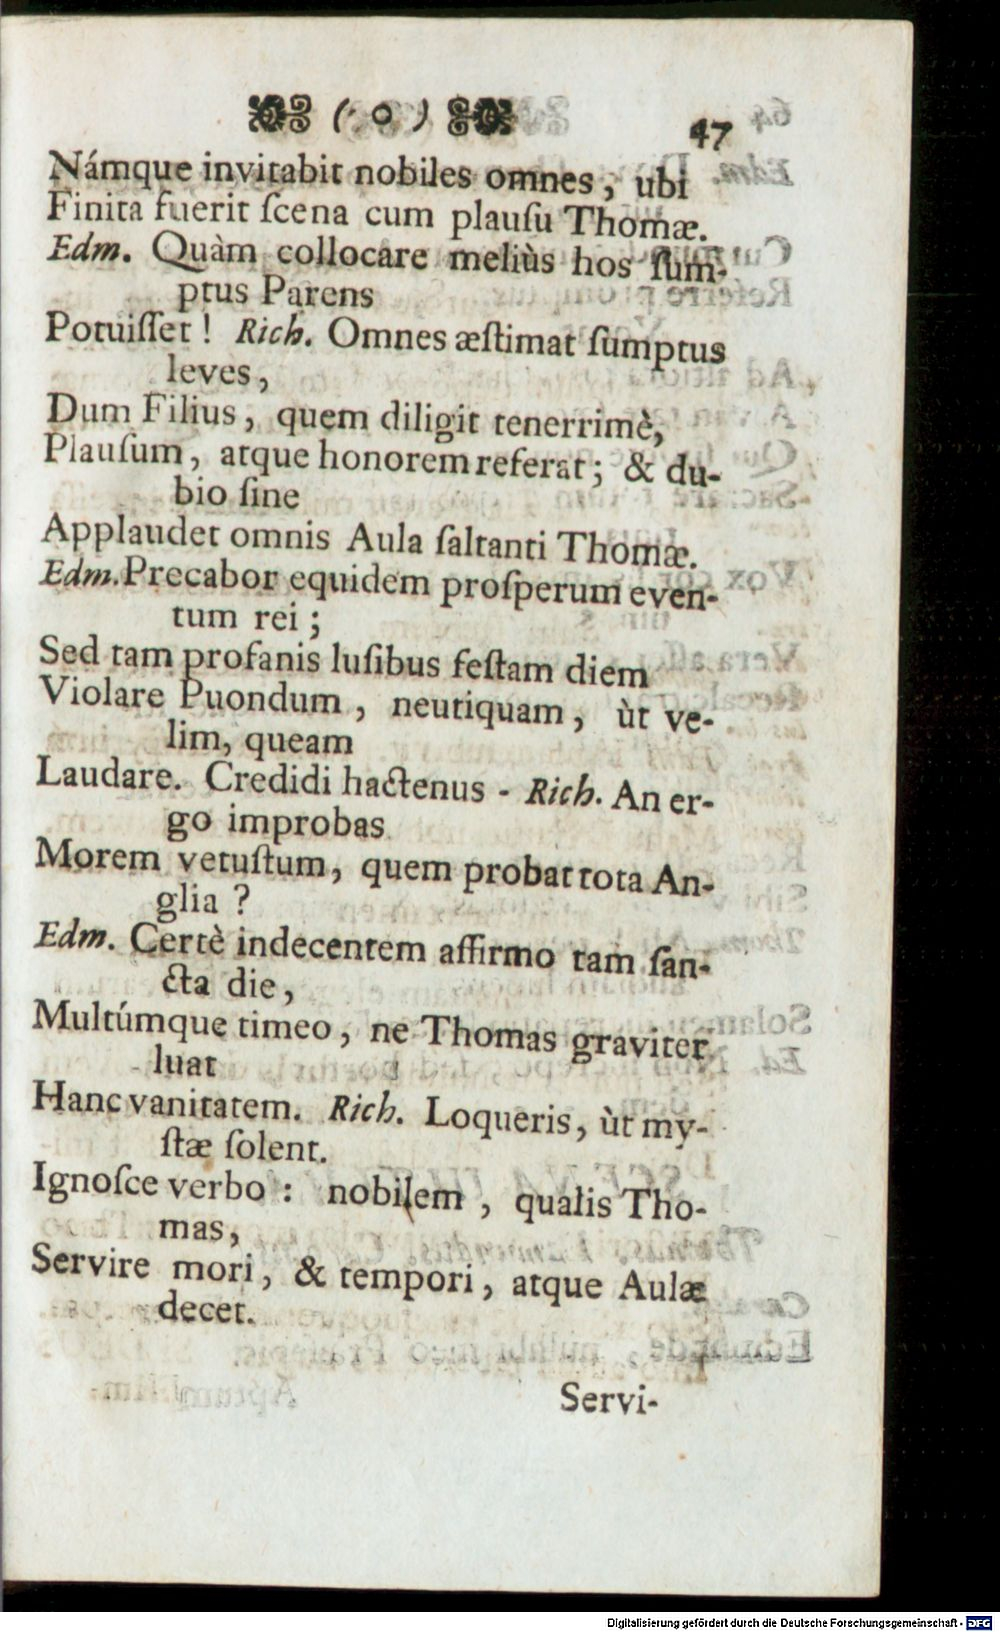 ( o ) 47
Námque invitabit nobiles omnes, ubi
Finita fuerit ſcena cum plauſu Thomæ.
Edm. Quàm collocare meliùs hos ſum-
ptus Parens
Potuiſſet! Rich. Omnes æſtimat ſumptus
leves,
Dum Filius, quem diligit tenerrimè,
Plauſum, atque honorem referat; & du-
bio ſine
Applaudet omnis Aula ſaltanti Thomæ.
Edm. Precabor equidem proſperum even-
tum rei;
Sed tam profanis luſibus feſtam diem
Violare Puondum, neutiquam, ùt ve-
lim, queam
Laudare. Credidi hactenus - Rich. An er-
go improbas
Morem vetuſtum, quem probat tota An-
glia?
Edm. Certè indecentem affirmo tam ſan-
cta die,
Multúmque timeo, ne Thomas graviter
luat
Hanc vanitatem. Rich. Loqueris, ùt my-
ſtæ ſolent.
Ignoſce verbo: nobilem, qualis Tho-
mas,
Servire mori, & tempori, atque Aulæ
decet.
Servi-
Digitalisierung gefördert durch die Deutsche Forschungsgemeinschaft - DFG